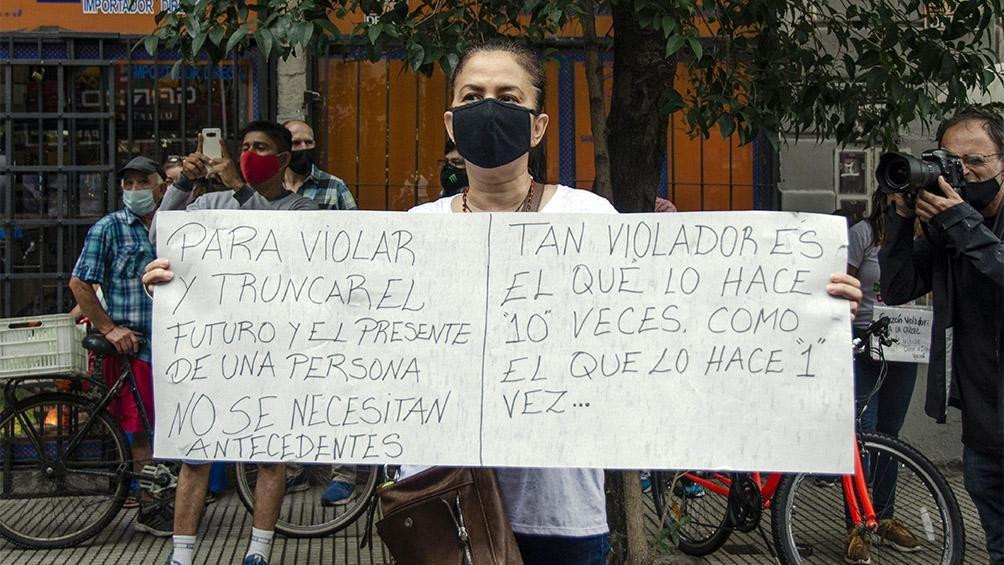 IMPORTADOR
PARA VIOLAR
Y TRUNCAR EL
FUTURO Y EL PRESENTE
DE UNA PERSONA
NO SE NECESITAN
ANTECEDENTES
TAN VIOLADOR ES
EL QUE LO HACE
"10" VECES. COMO
EL QUE LO HACE "1"
VEZ...